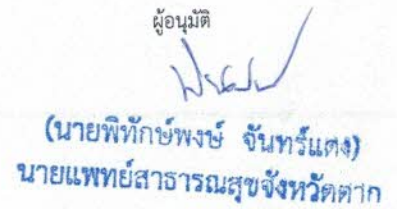 ผู้อนุมัติ
(นายพิทักษ์พงษ์ จันทร์แดง)
นายแพทย์สาธารณสุขจังหวัดตาก